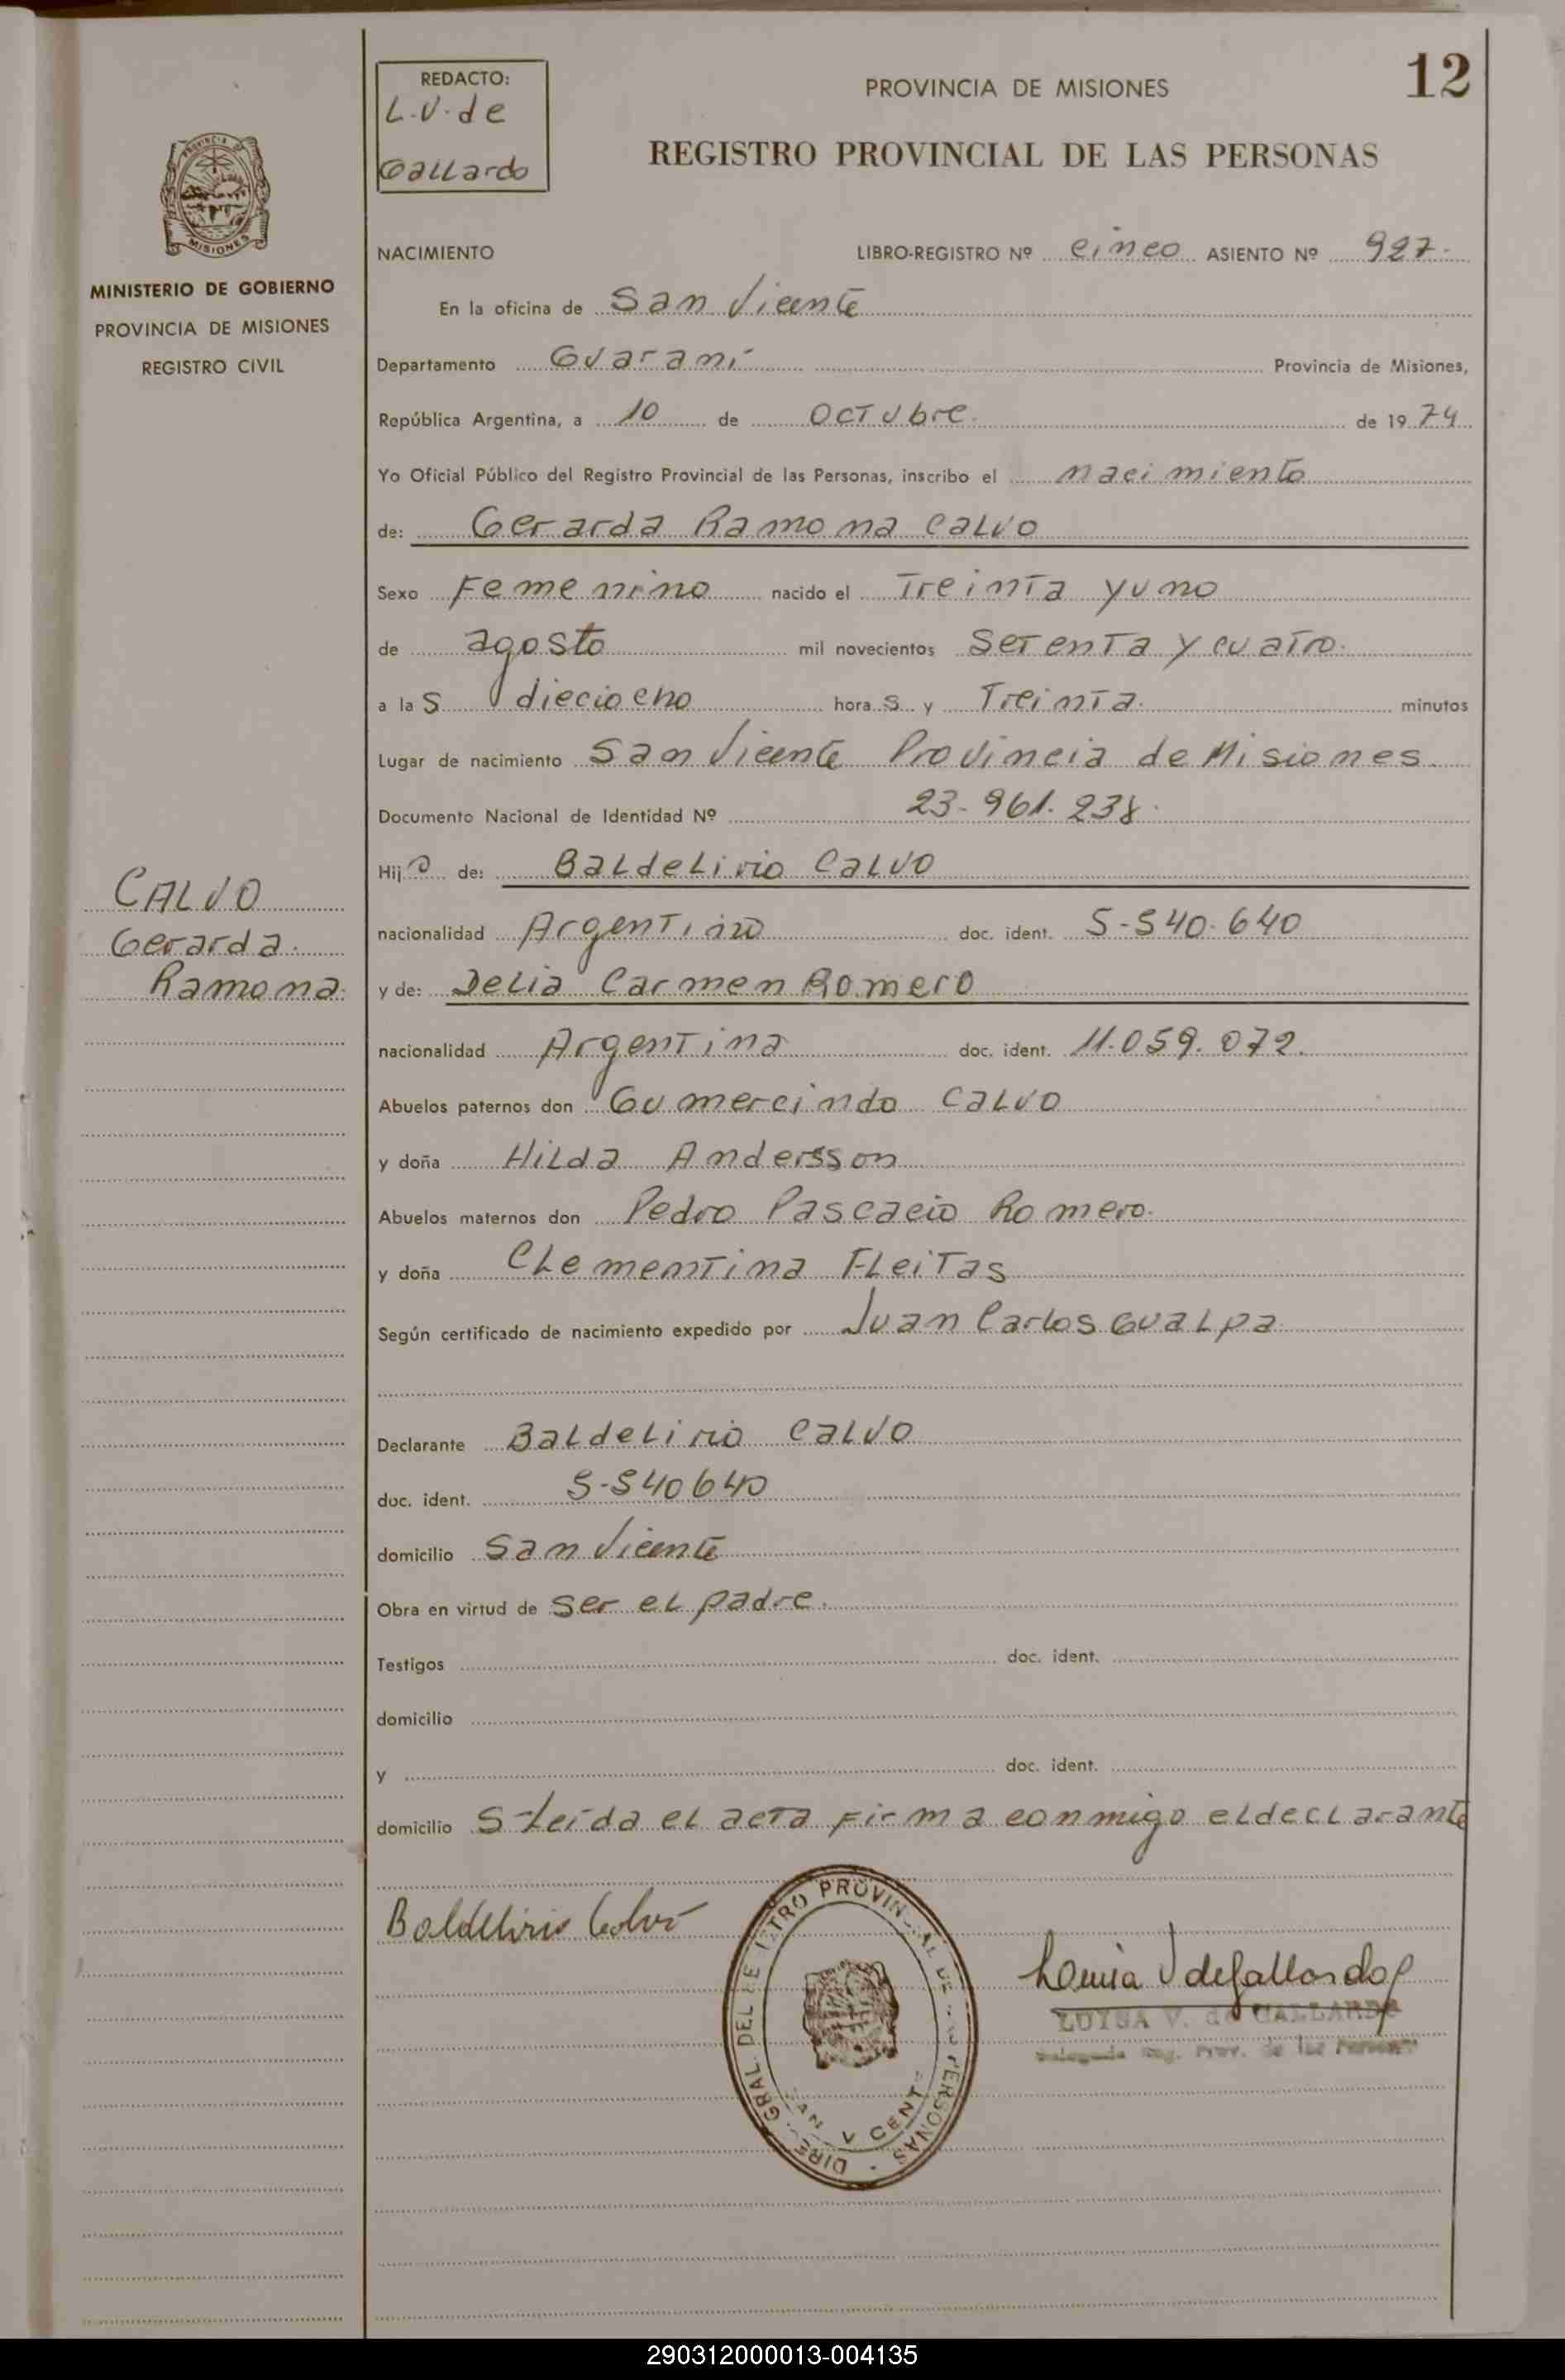 REDACTO:
L.V. de
Gallardo
PROVINCIA DE MISIONES
12
REGISTRO PROVINCIAL DE LAS PERSONAS
PROVINCIA DE
MISIONES
MINISTERIO DE GOBIERNO
PROVINCIA DE MISIONES
REGISTRO CIVIL
NACIMIENTO LIBRO-REGISTRO Nº cinco ASIENTO Nº 927.
En la oficina de San Vicente
Departamento Guaraní Provincia de Misiones,
República Argentina, a 10 de Octubre. de 1974
Yo Oficial Público del Registro Provincial de las Personas, inscribo el nacimiento
de: Gerarda Ramona Calvo
Sexo Femenino nacido el Treinta y uno
de agosto mil novecientos Setenta y cuatro.
a las dieciocho horas y Treinta. minutos
Lugar de nacimiento San Vicente Provincia de Misiones.
Documento Nacional de Identidad Nº 23-961.238.
CALVO
Gerarda.
Ramona.
Hija de: Baldelirio Calvo
nacionalidad Argentino doc. ident. 5-540.640
y de: Delia Carmen Romero
nacionalidad Argentina doc. ident. 11.059.072.
Abuelos paternos don Gumercindo Calvo
y doña Hilda Andersson
Abuelos maternos don Pedro Pascacio Romero.
y doña Clementina Fleitas
Según certificado de nacimiento expedido por Juan Carlos Gualpa
Declarante Baldelirio Calvo
doc. ident. 5-540640
domicilio San Vicente
Obra en virtud de ser el padre.
Testigos doc. ident.
domicilio
y doc. ident.
domicilio S-Leída el acta firma conmigo el declarante
Baldelirio Calvo
Luisa V de Gallardo
LUISA V. de GALLARDO
Delegada Reg. Prov. de las Personas
290312000013-004135